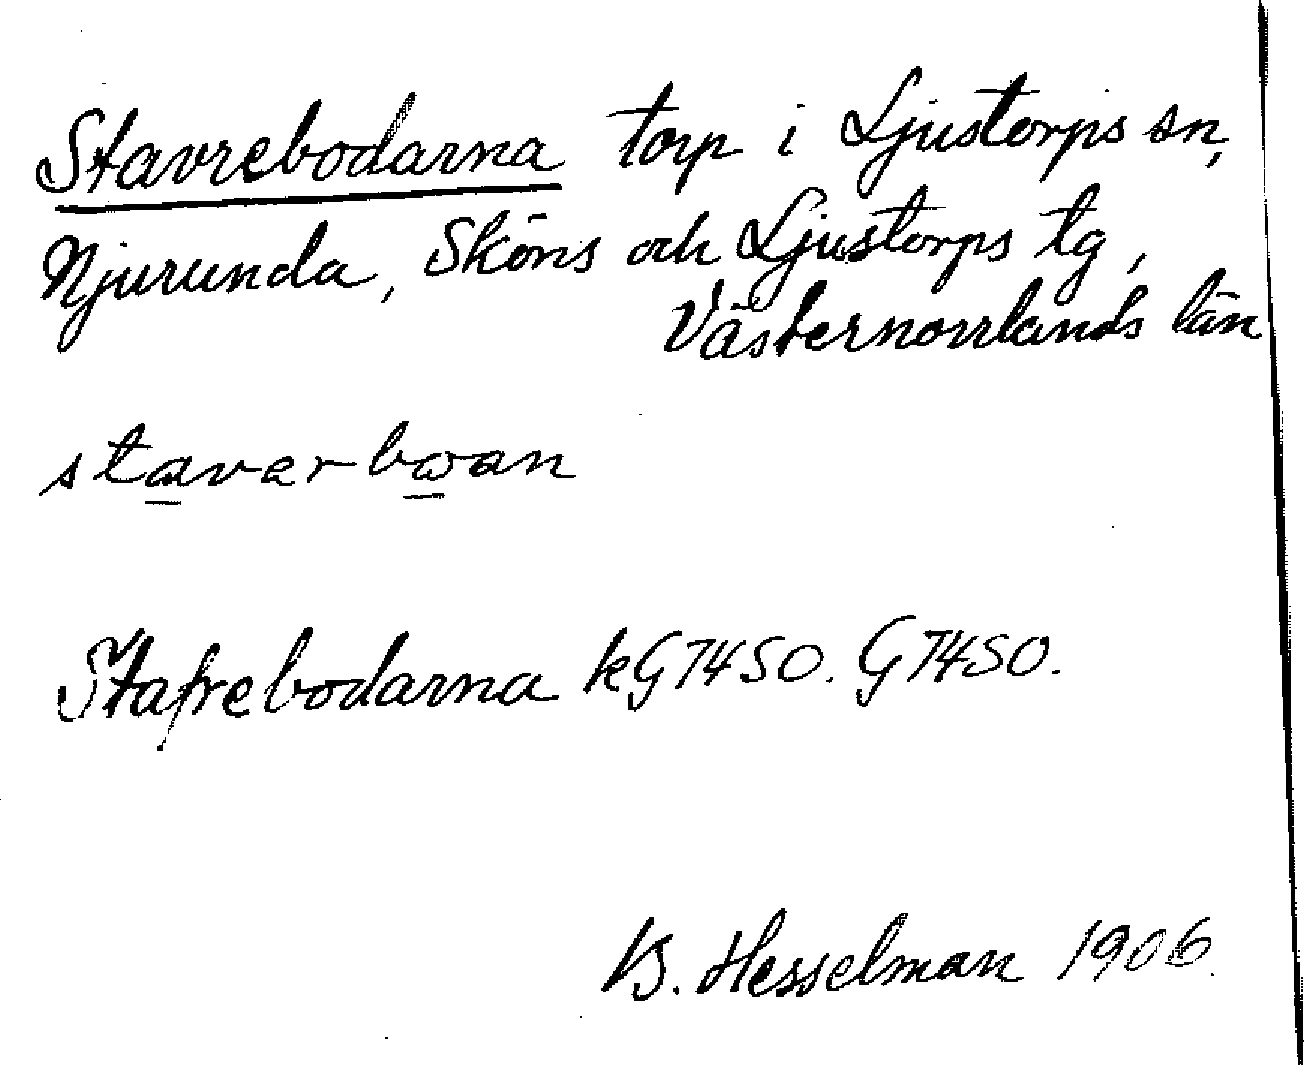 Stavrebodarna torp i Ljustorps sn,
Njurunda, Sköns och Ljustorps tg,
Västernorrlands län
staverbωan
Stafrebodarna kG7450. G7450.
B. Hesselman 1906.